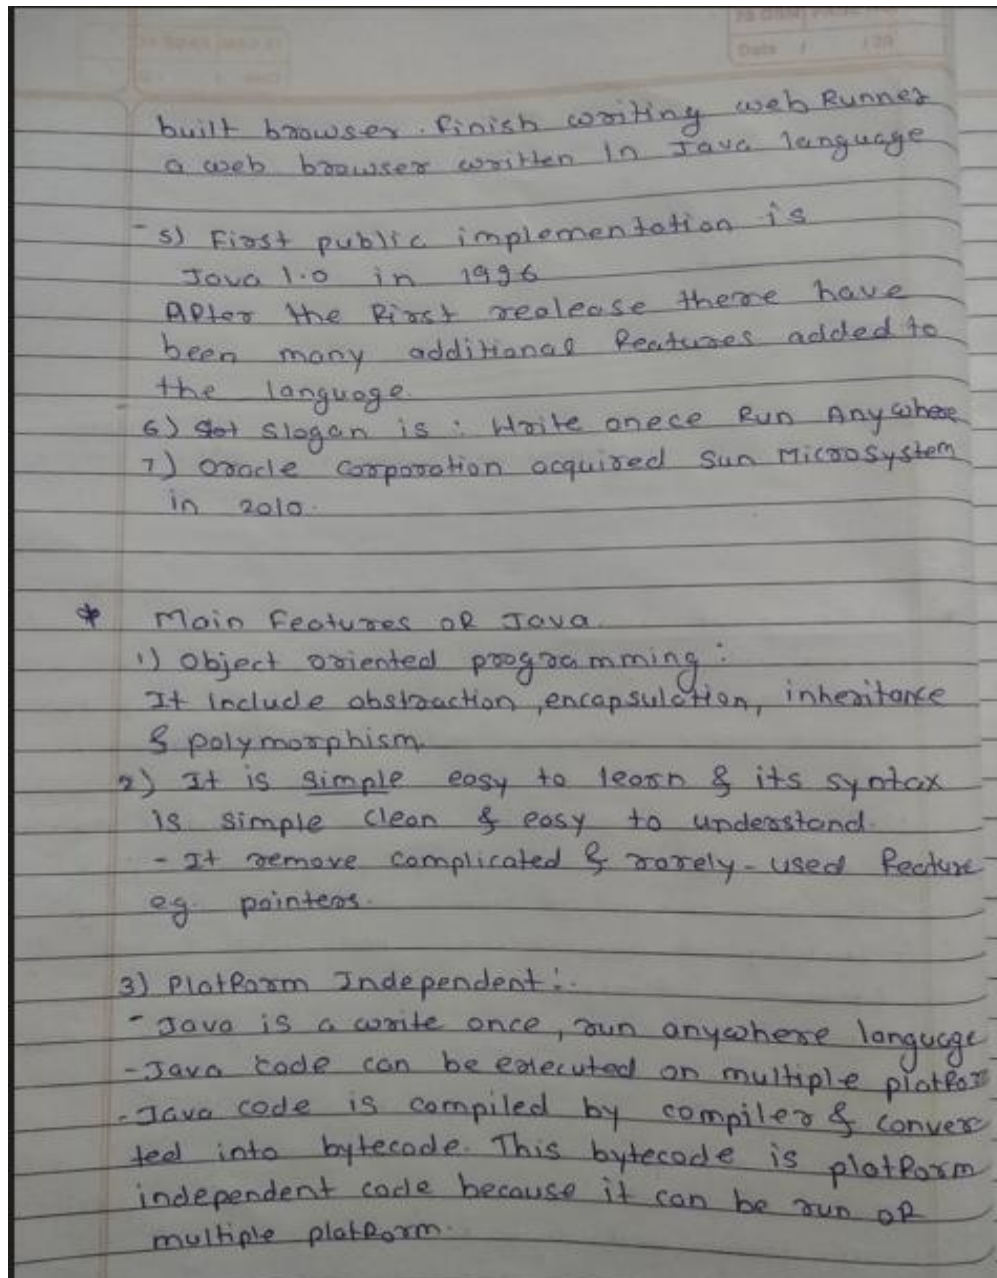 Date / /20
built browser. Finish writing web Runner
a web browser written In Java language
- 5) First public implementation is
Java 1.0 in 1996
After the first realease there have
been many additional features added to
the language.
6) slogan is : Write onece Run Anywhere
7) Oracle Corporation acquired Sun Microsystem
in 2010.
* Main Features of Java.
1) Object oriented programming :
It include abstraction, encapsulation, inheritance
& polymorphism.
2) It is simple easy to learn & its syntax
is simple clean & easy to understand.
- It remove complicated & rarely-used feature
eg. pointers.
3) Platform Independent :.
- Java is a write once, run anywhere language
- Java code can be executed on multiple platfor
- Java code is compiled by compiler & conver
ted into bytecode. This bytecode is platform
independent code because it can be run of
multiple platform.